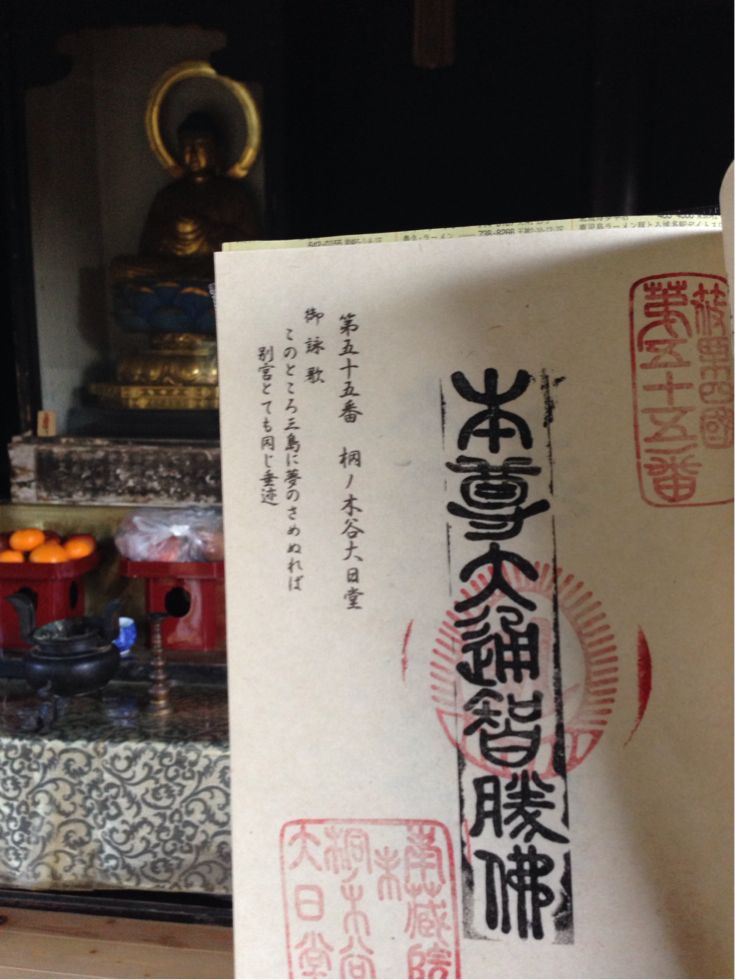 篠栗四國
第五十五番
本尊大通智勝佛
第五十五番 桐ノ木谷大日堂
御詠歌
このところ三島に夢のさめぬれば
別宮とても同じ垂迹
南蔵院
桐木谷
大日堂